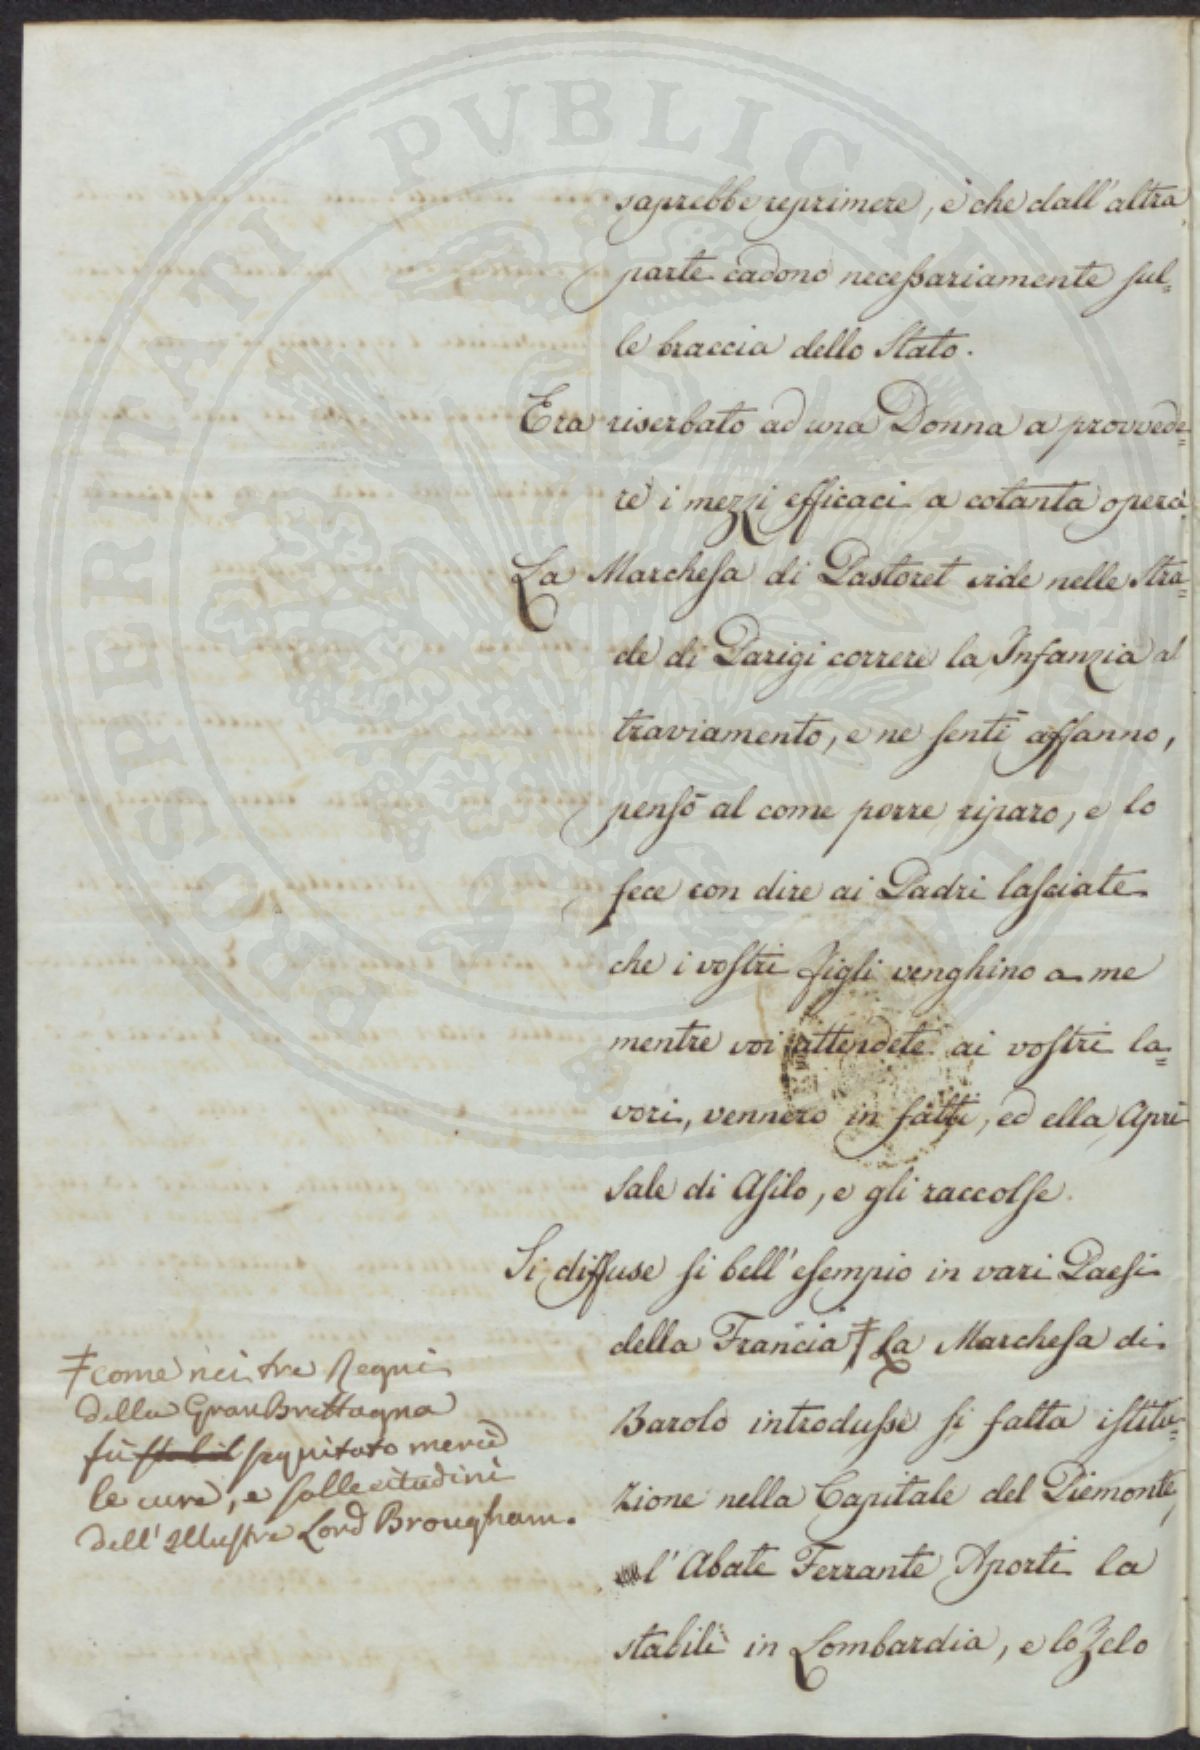 saprebbe reprimere, e che dall'altra
parte cadono necessariamente sul=
le braccia dello Stato.
Era riserbato ad una Donna a provvede=
re i mezzi efficaci a cotanta opera
La Marchesa di Pastoret vide nelle Stra=
de di Parigi correre la Infanzia al
traviamento, e ne sentì affanno,
pensò al come porre riparo, e lo
fece con dire ai Padri lasciate
che i vostri figli venghino a me
mentre voi attendete ai vostri la=
vori, vennero in fatti, ed ella aprì
sale di Asilo, e gli raccolse.
Si diffuse si bell'esempio in vari Paesi
della Francia ‡ La Marchesa di
Barolo introdusse si fatta istitu=
zione nella Capitale del Piemonte,
l'Abate Ferrante Aporti la
stabilì in Lombardia, e lo Zelo
‡ come nei tre Regni
della Gran Brettagna
fù seguitato mercè
le cure, e sollecitudini
dell'Illustre Lord Brougham.
PROSPERITATI PVBLICAE